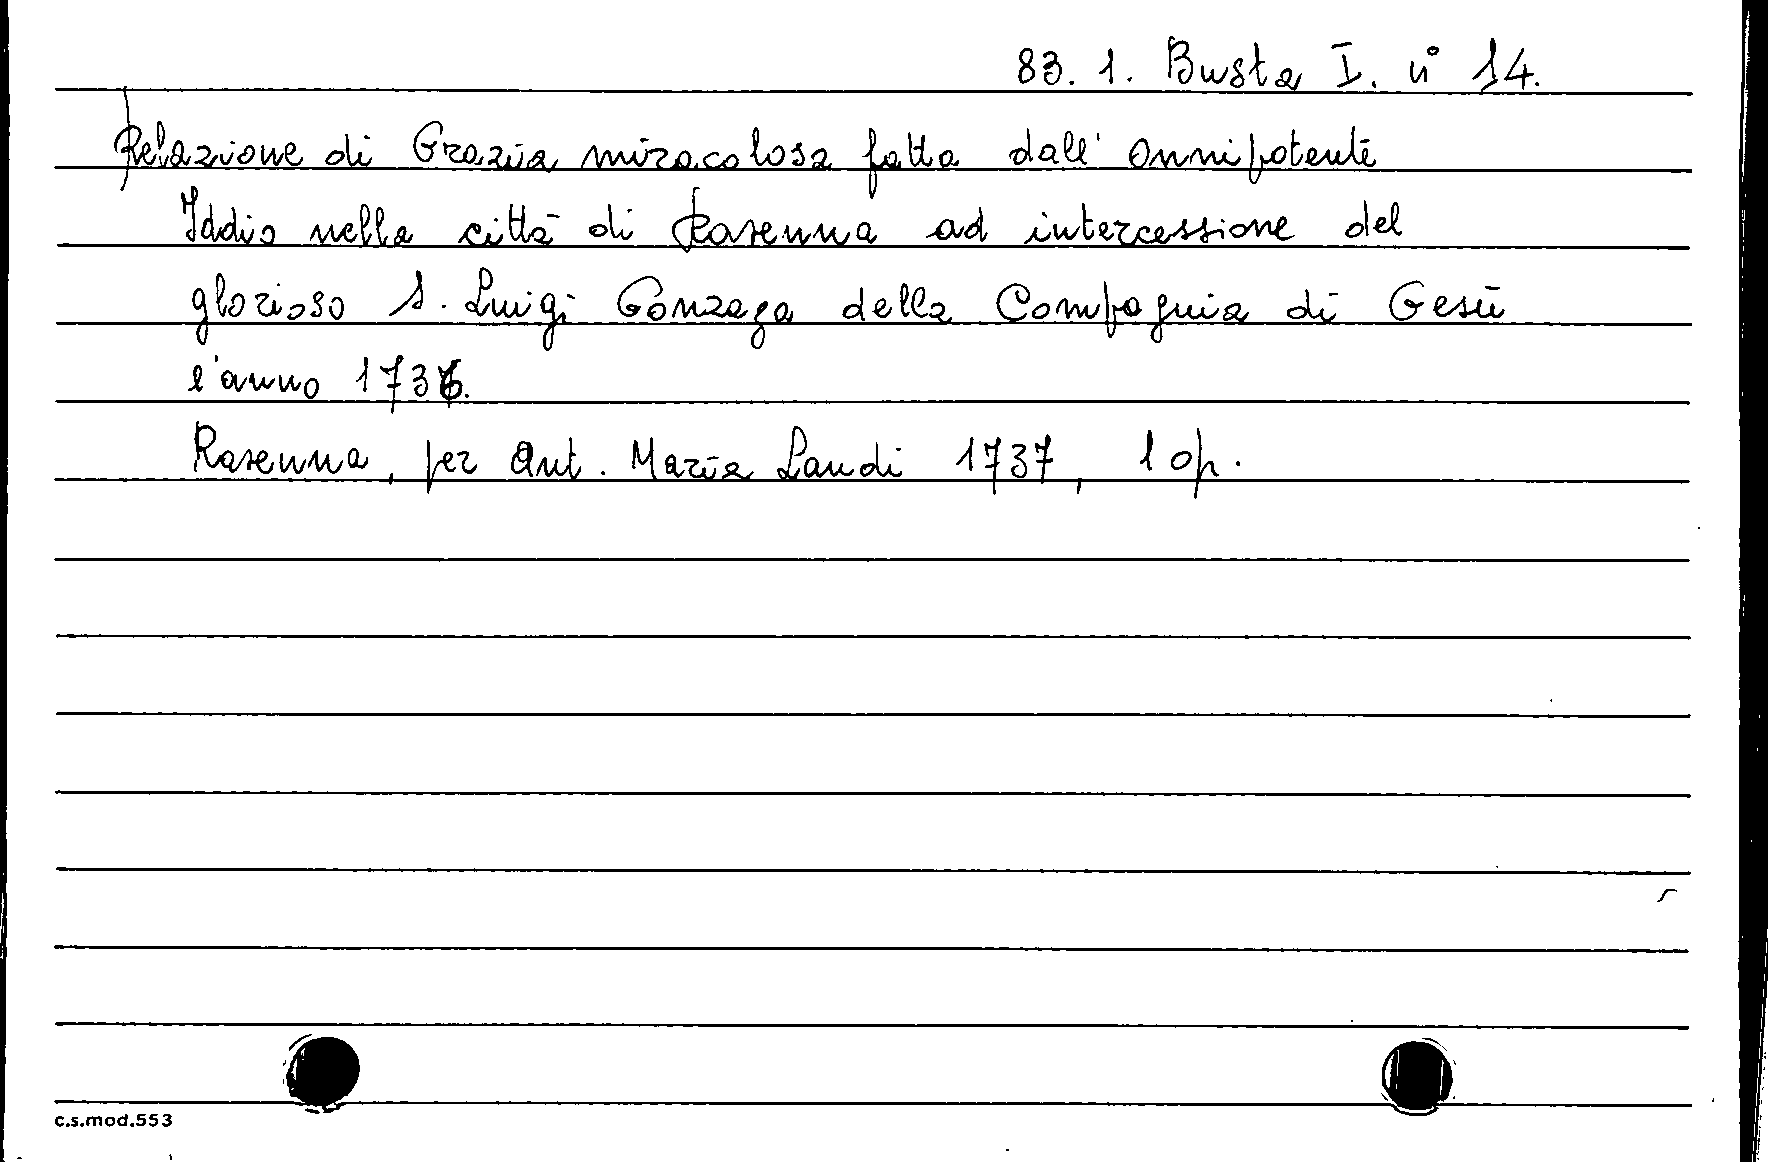 83. 1. Busta I. n° 14.
Relazione di Grazia miracolosa fatta dall' Onnipotente
Iddio nella città di Ravenna ad intercessione del
glorioso S. Luigi Gonzaga della Compagnia di Gesù
l'anno 1736.
Ravenna, per Ant. Maria Landi 1737, 1 op.
c.s.mod.553